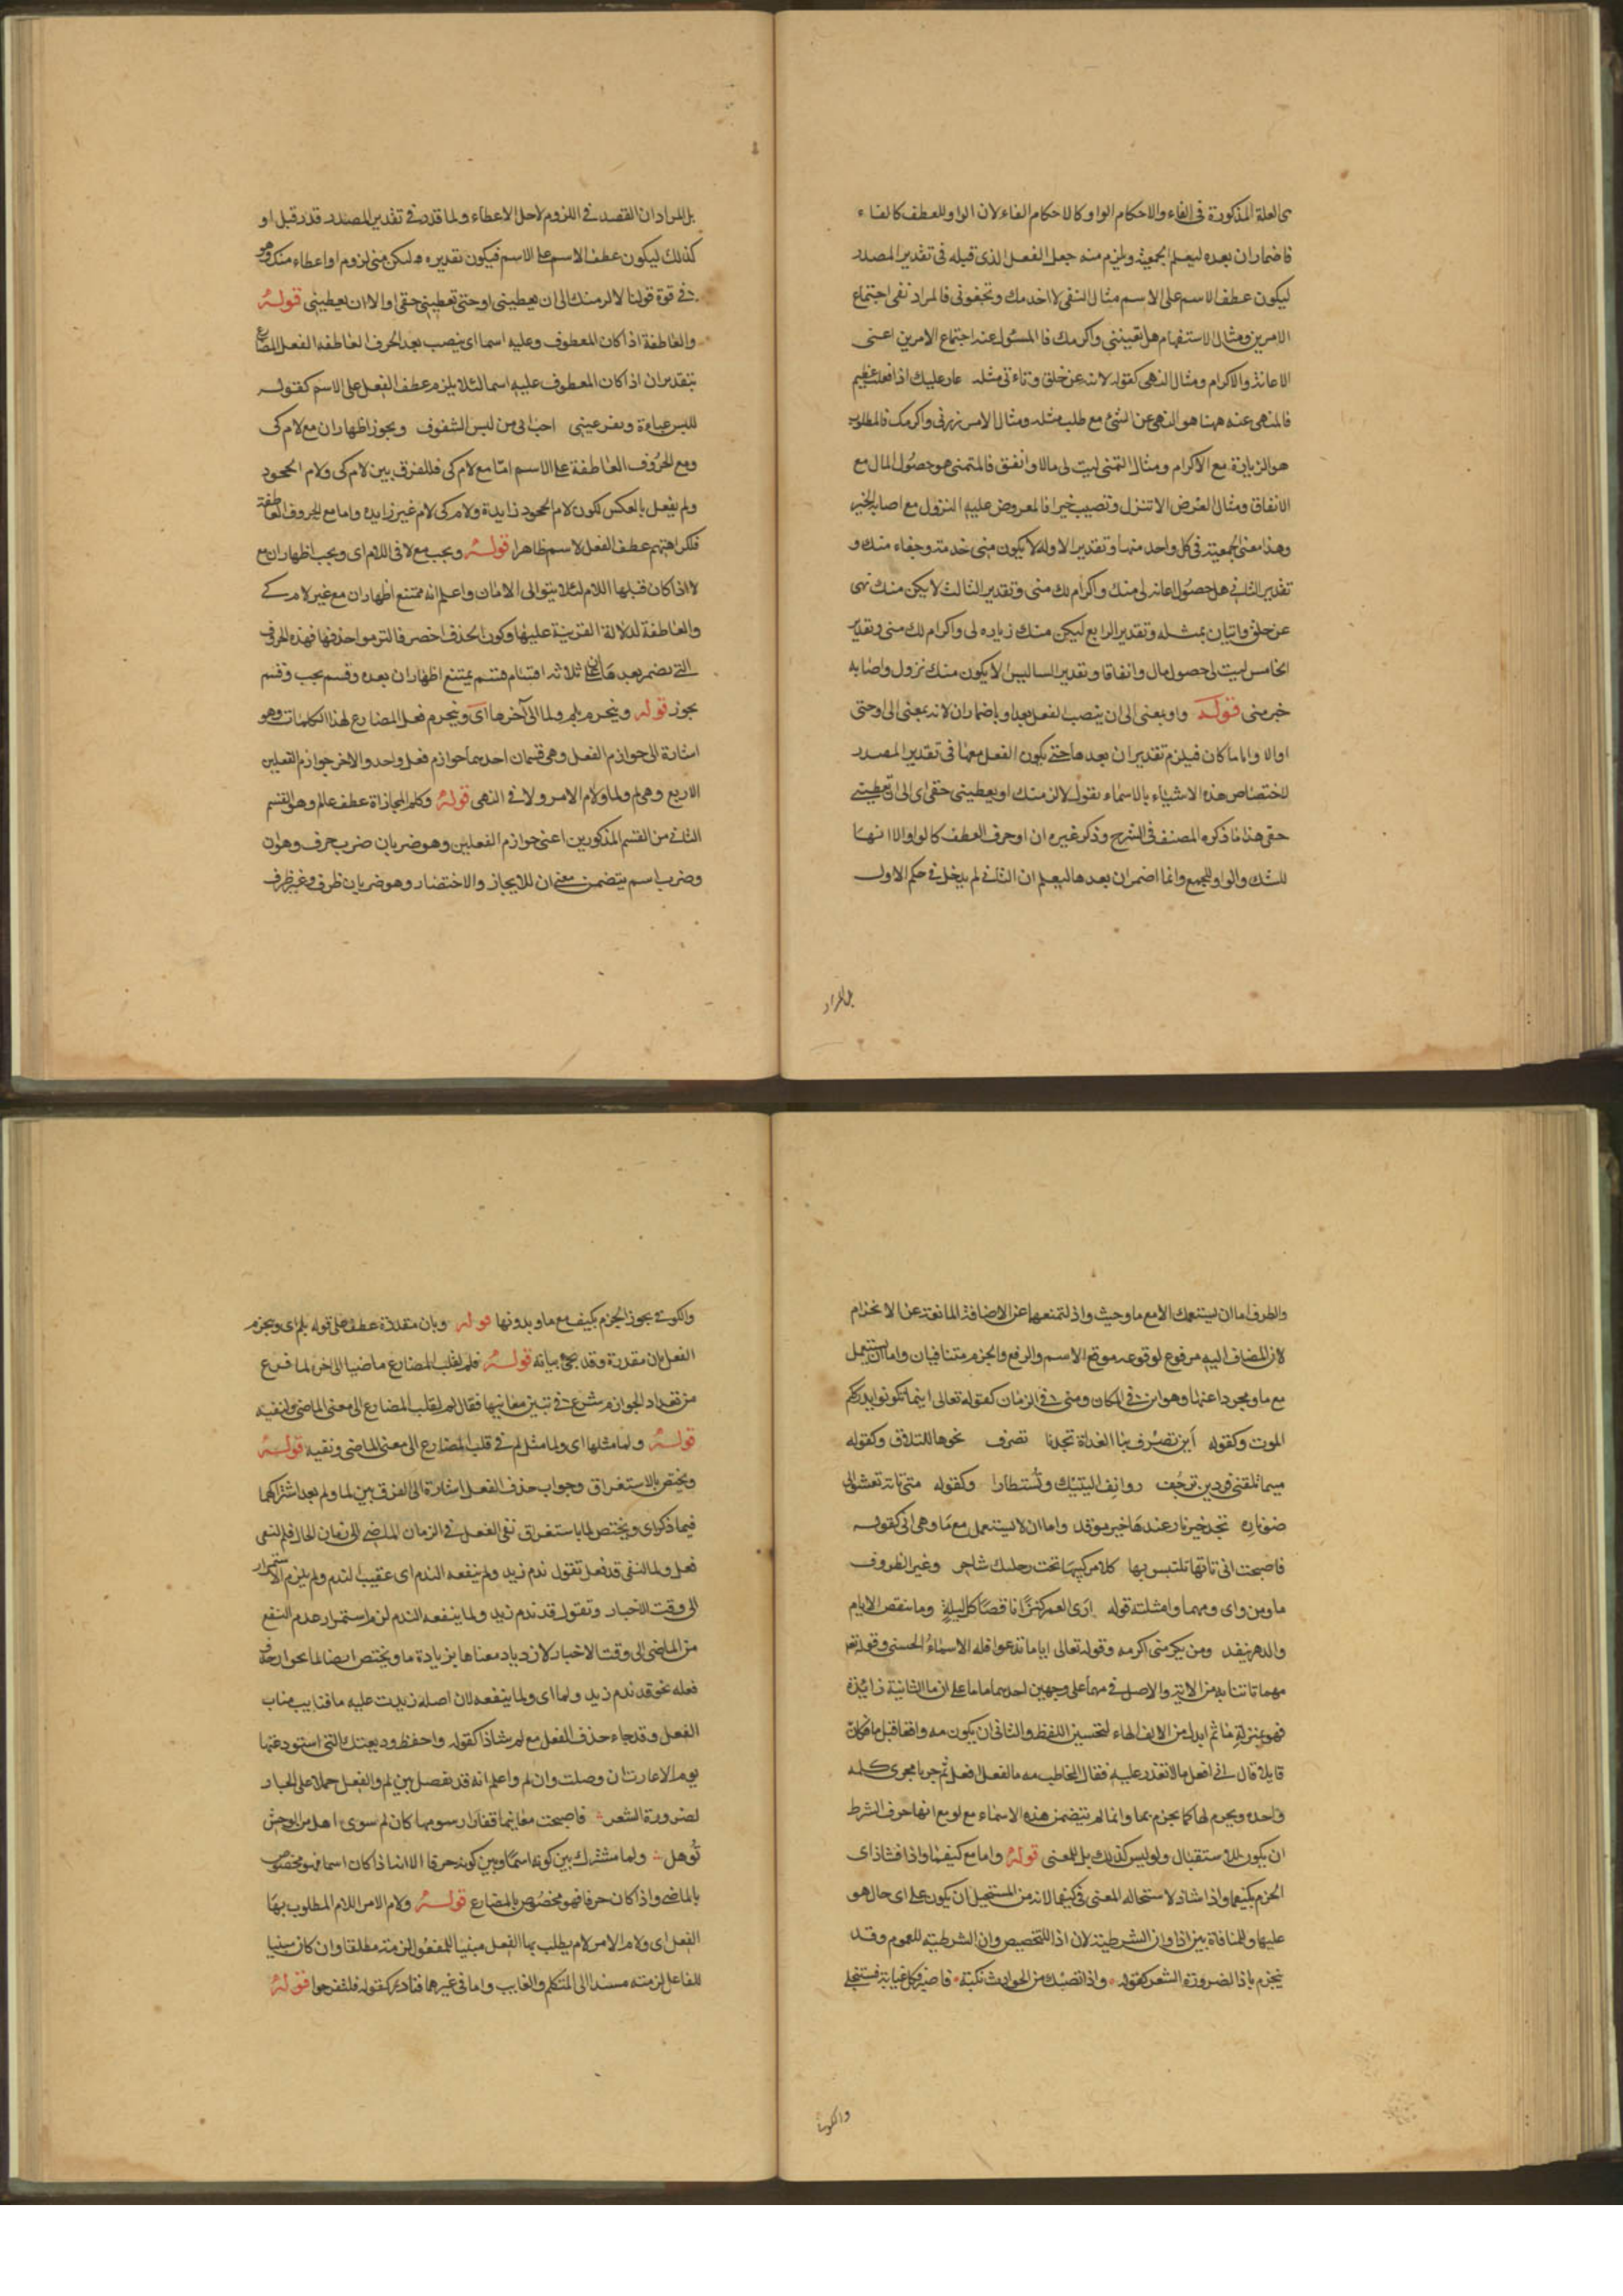 ى العلة المذكورة فى الفاء والاحكام الواو كالاحكام الفاء لان الواو للعطف كالفاء
فاضمار ان بعده ليعلم الجمعية ويلزم منه جعل الفعل الذى قبله فى تقدير المصدر
ليكون عطف الاسم على الاسم مثال النفى لا اخدمك وتجفونى فالمراد نفى اجتماع
الامرين ومثال الاستفهام هل تعيننى واكرمك فالمسئول عنه اجتماع الامرين اعنى
الاعانة والاكرام ومثال النهى كقوله لاتنه عن خلق وتاءتى مثله عار عليك اذا فعلت عظيم
فالمنهى عنه ههنا هو النهى عن الشئ مع طلب مثله ومثال الامر زرنى واكرمك فالمطلوب
هو الزيارة مع الاكرام ومثال التمنى ليت لى مالا وانفق فالمتمنى هو حصول المال مع
الانفاق ومثال العرض الا تنزل وتصيب خيرا فالمعروض عليه النزول مع اصابة الخير
وهذا معنى الجمعية فى كل واحد منها وتقدير الاول لا يكون منى خدمة وجفاء منك و
تقدير الثانى هل حصول اعانة لى منك واكرام لك منى وتقدير الثالث لا يكن منك نهى
عن خلق واتيان بمثله وتقدير الرابع ليكن منك زياده لى واكرام لك منى وتقدير
الخامس ليت لى حصول مال وانفاقا وتقدير السادس الا يكون منك نزول واصابه
خير منى قوله واو بمعنى الى ان ينصب الفعل بعد او باضمار ان لانه بمعنى الى او حتى
او الا واياما كان فيلزم تقدير ان بعدها حتى يكون الفعل معها فى تقدير المصدر
لاختصاص هذه الاشياء بالاسماء نقول لالزمنك او يعطينى حقى اى الى ان تعطينى
حقى هذا ما ذكره المصنف فى الشرح وذكر غيره ان او حرف العطف كالواو الا انها
للشك والواو للجمع وانما اضمر ان بعدها ليعلم ان الثانى لم يدخل فى حكم الاول
بل المراد
بل المراد ان القصد فى اللزوم لاجل الاعطاء ولما قدر فى تقدير المصدر قدر قبل او
كذلك ليكون عطف الاسم على الاسم فيكون تقديره وليكن منى لزوم او اعطاء منك وهو
فى قوة قولنا لالزمنك الى ان يعطينى او حتى تعطينى حقى او الا ان يعطينى قوله
والعاطفة اذا كان المعطوف وعليه اسما اى ينصب بعد الحرف العاطفه الفعل المضارع
بتقدير ان اذا كان المعطوف عليه اسما لئلا يلزم عطف الفعل على الاسم كقوله
للبس عباءة وتقر عينى احب الى من لبس الشفوف ويجوز اظهار ان مع لام كى
ومع الحروف العاطفة على الاسم اما مع لام كى فللفرق بين لام كى ولام الجحود
ولم يفعل بالعكس لكون لام الجحود زايدة ولام كى لام غير زايده واما مع الحروف العاطفة
فلكراهتهم عطف الفعل لاسم ظاهرا قوله ويجب مع لا فى اللام اى ويجب اظهار ان مع
لا اذا كان قبلها اللام لئلا يتوالى الامان واعلم انه ممتنع اظهار ان مع غير لام كى
والعاطفة لدلالة القرينة عليها وكون الحذف اخصر فالتزموا حذفها فهذه الحروف
التى يضمر بعدها ان على ثلاثه اقسام قسم يمتنع اظهار ان بعده وقسم يجب وقسم
يجوز قوله وينجزم بلم ولما الى آخرها اى وينجزم فعل المضارع لهذا الكلمات وهو
اشارة الى جوازم الفعل وهى قسمان احدهما جوازم فعل واحد والاخر جوازم الفعلين
الاربع وهى لم ولما ولام الامر ولا فى النهى قوله وكلم المجازاة عطف على لم وهو القسم
الثانى من القسم المذكورين اعنى جوازم الفعلين وهو ضربان ضرب حرف وهو ان
وضرب اسم يتضمن معنى ان للايجاز والاختصار وهو ضربان ظرف وغير ظرف
والظرف اما ان يستعمل الا مع ما وحيث واذ لتمنعها عن الاضافة المانعة عن الانجزام
لان المضاف اليه مرفوع لوقوعه موقع الاسم والرفع والجزم متنافيان واما ان يستعمل
مع ما ومجردا عنها وهو اين فى المكان ومتى فى الزمان كقوله تعالى اينما تكونوا يدرككم
الموت وكقوله اين تصرف بنا الغداة تجدنا نصرف نحوها للتلاق وكقوله
ميما تلقنى فردين ترجف روانف اليتيك وتستطارا وكقوله متى تاته تعشو الى
ضوناره تجد خير نار عندها خير موقد واما ان لا يستعمل مع ما وهى انى كقوله
فاصبحت انى تاتها تلتبس بها كلا مركبيها تحت رجلك شاجر وغير الظروف
ما ومن واى ومهما وامثلته قوله ارى العمر كنزا ناقصا كل ليلة وما تنقص الايام
والدهر ينفد ومن يكرمنى اكرمه وقوله تعالى اياما تدعوا فله الاسماء الحسنى وقوله تعا
مهما تاتنا به من الايتر والاصل فى مهما على وجهين احدهما ما ما على ان ما الثانية زائدة
فهو بمنزلة ما ثم ابدل من الالف الهاء لتحسين اللفظ والثانى ان يكون مه واقعا قبل ما فكان
قايلا قال انى افعل مالا تقدر عليه فقال المخاطب مه ما لفعل افعل ثم جريا مجرى كلمه
واحده ويجزم لها كما يجزم بما وانما لم يتضمن هذه الاسماء مع لو مع انها حرف الشرط
ان يكون للاستقبال ولو ليس كذلك بل للمعنى قوله واما مع كيفما واذا فشاذ اى
الجزم بكيفما واذا شاذ لاستحاله المعنى فى كيفما لانه من المستحيل ان يكون على اى حال هو
عليها وللمنافاة بين اذا وان الشرطية لان اذا للتخصيص وان الشرطيه للعموم وقد
ينجزم باذا الضرورة الشعر كقوله واذا تصبك من الحوادث نكبة فاصبر فكل غيابة فستنجلى
والكوفى
والكوفى يجوز الجزم بكيف مع ما وبدونها قوله وبان مقدرة عطف على قوله بلم اى وينجزم
الفعل بان مقدرة وقد يجئ بيانه قوله فلم لقلب المضارع ماضيا الى اخر لما فرع
من تعداد الجوازم شرع فى تبين معانيها فقال لم لقلب المضارع الى معنى الماضى ولنفيه
قوله ولما مثلها اى ولما مثل لم فى قلب المضارع الى معنى الماضى ونفيه قوله
ويختص بالاستغراق وجواب حذف الفعل اشارة الى الفرق بين لما ولم بعد اشتراكهما
فيما ذكر اى ويختص لما باستغراق نفى الفعل فى الزمان الماضى الى زمان الحال فلم لنفى
فعل ولما لنفى قد فعل تقول ندم زيد ولم ينفعه الندم اى عقيب لندم ولم يلزم الاستمرار
الى وقت الاخبار وتقول قد ندم زيد ولما ينفعه الندم لزم استمرار عدم النفع
من الماضى الى وقت الاخبار لازدياد معناها بزيادة ما ويختص ايضا لما بجواز حذف
فعله نحو قد ندم زيد ولما اى ولما ينفعه لان اصله زيدت عليه ما فناب مناب
الفعل وقد جاء حذف الفعل مع لم شاذا كقوله واحفظ وديعتك التى استودعتها
يوم الاعارتان وصلت وان لم واعلم انه قد يفصل بين لم والفعل حملا على الجار
لضرورة الشعر فاصبحت مغانيها قفارا رسومها كان لم سوى اهل من الوحش
توهل ولما مشترك بين كونه اسما وبين كونه حرفا الا انها اذا كان اسما فهو مخصوص
بالماضى واذا كان حرفا فهو مخصوص بالمضارع قوله ولام الامر اللام المطلوب بها
الفعل اى ولام الامر لام يطلب بها الفعل مبنيا للمفعول لزمته مطلقا وان كان مبنيا
للفاعل لزمته مسندا الى المتكلم والغايب واما فى غيرهما فنادر كقوله فلتفرحوا قوله